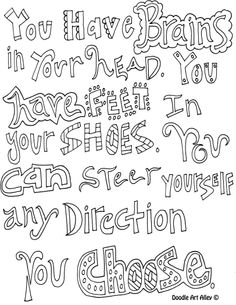 You Have Brains
in Your HEAD. You
have FEET In
your SHOES. You
can steer YOURSELF
any Direction
You choose.
Doodle Art Alley ©